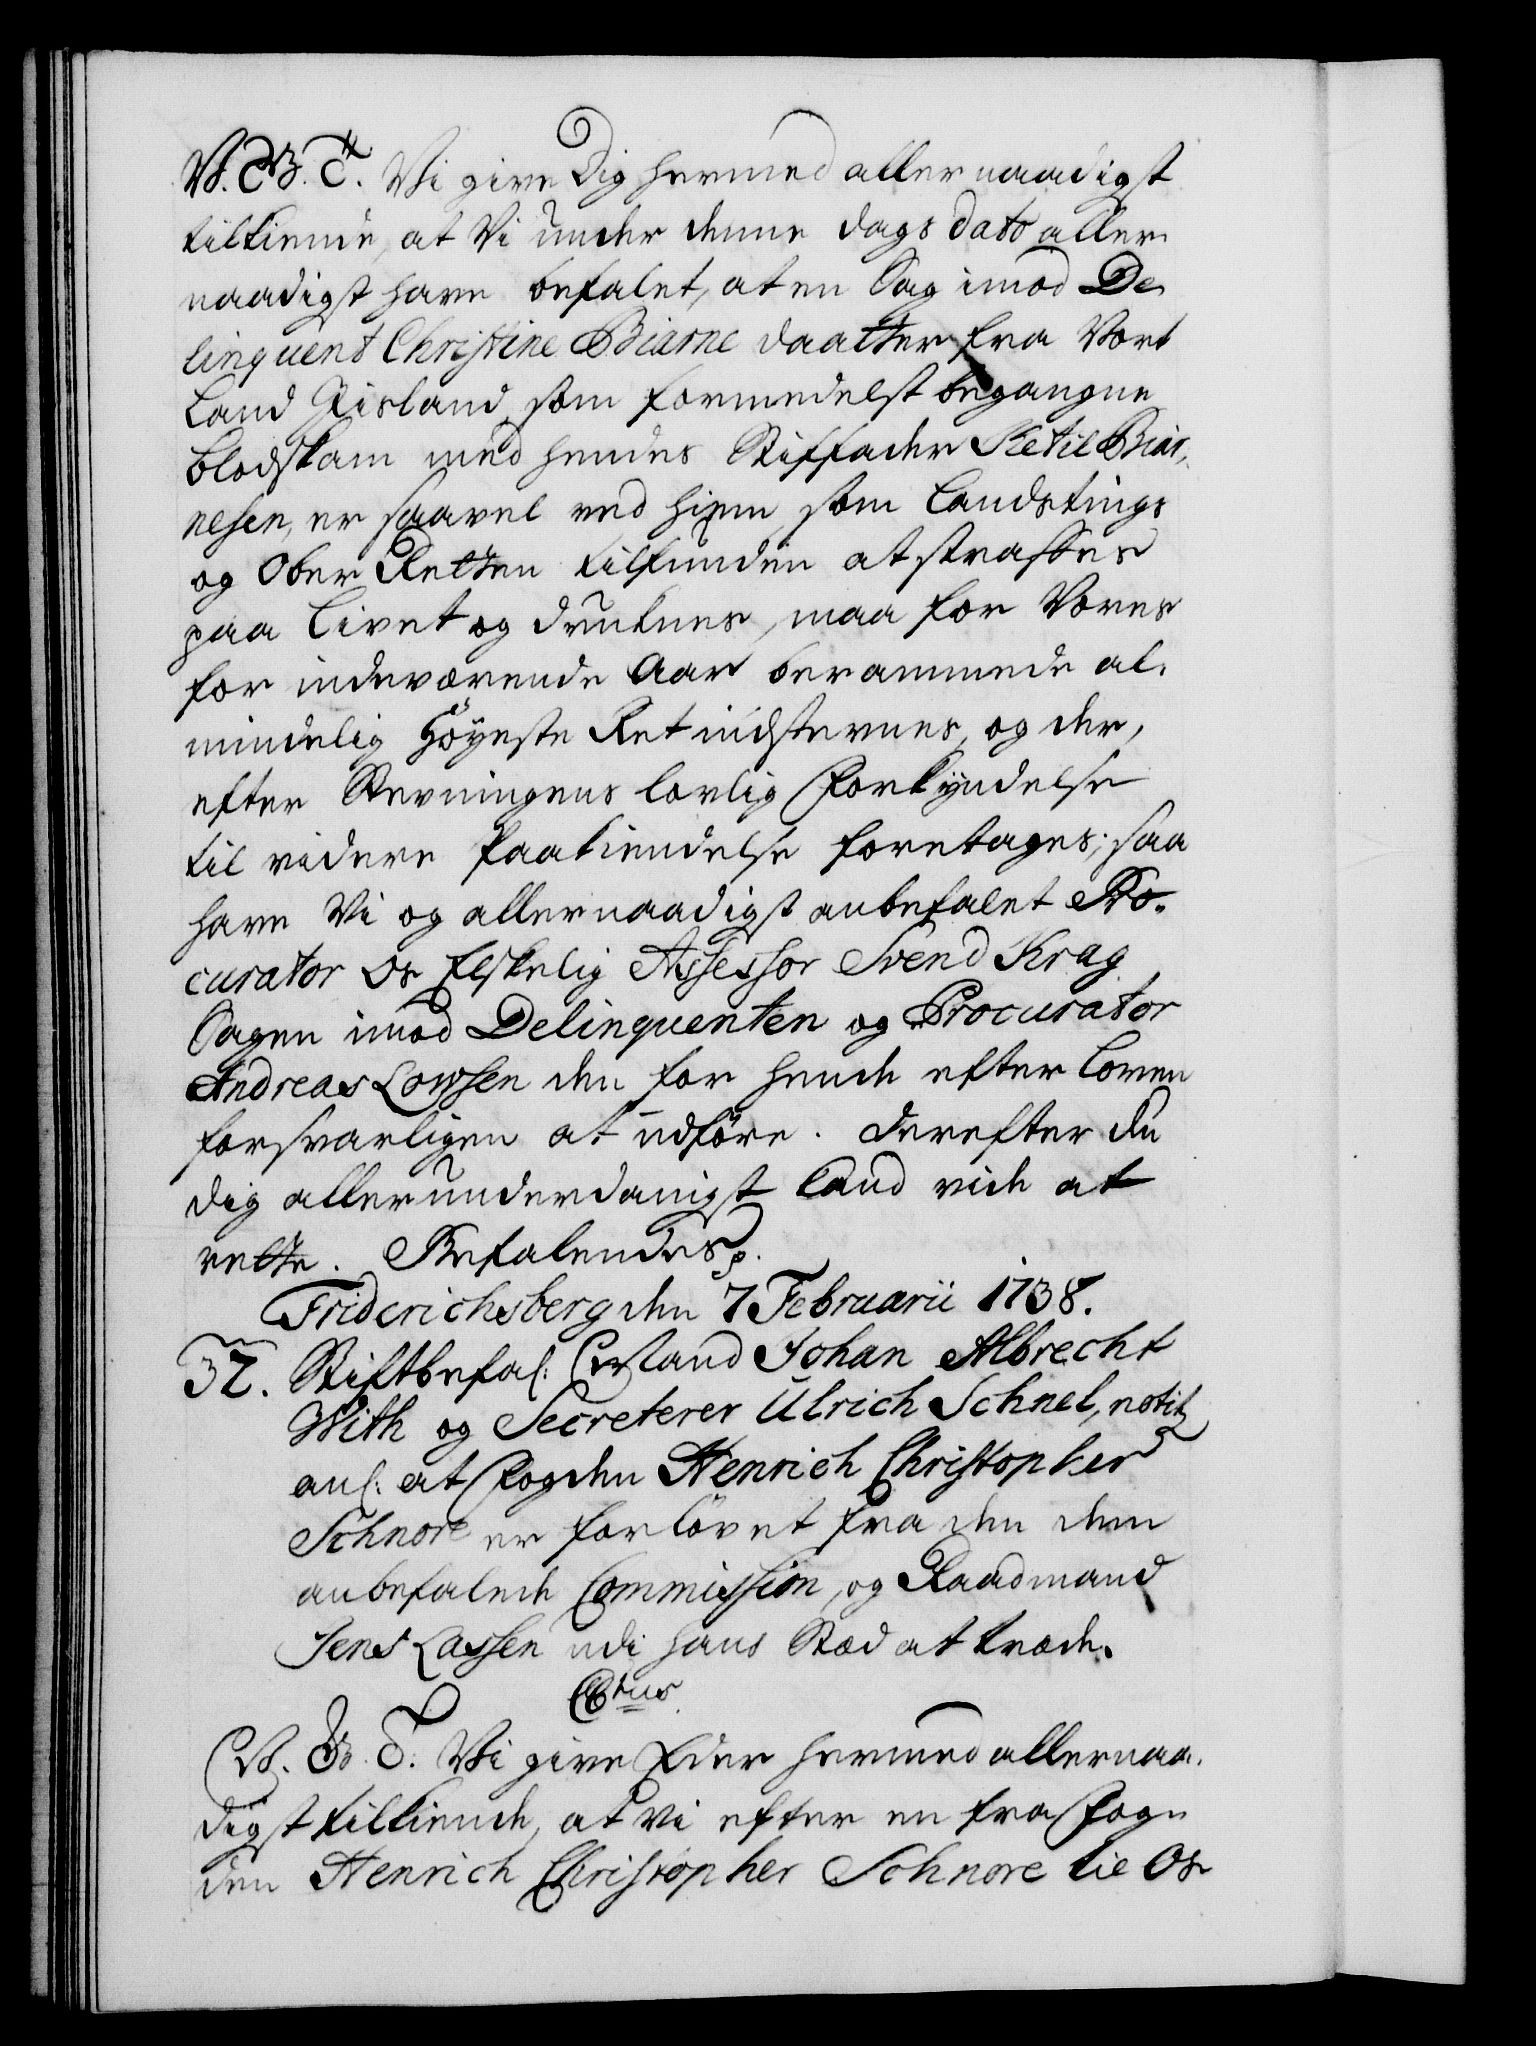 V. G. T. Vi give Dig hermed allernaadigst
tilkiende, at Vi under denne Dags Dato aller
naadigst have befalet, at en Sag imod De
linquent Christine Biarne daatter fra Vort
Land Iisland, som formedelst begangne
blodskam med hendes Stiffader Ketil Biar,
nesen, er saavel ved hiem, som Landstings
og Ober Retten tilfunden at straffes
paa Livet og druknes, maa for Vores
for indeværende Aar berammede al.
mindelig Höyeste Ret indstevnes, og der,
efter Stevningens lovlig Forkyndelse
til videre Paakiendelse foretages; saa
have Vi og allernaadigst anbefalet Pro.
curator Os Elskelig Assessor Svend Krag
Sagen imod Delinquenten og Procurator
Andreas Lowsen den for hende efter Loven
forsvarligen at udföre. Derefter du
dig allerunderdanigst Land vide at
rette. Befalendes p.
Friderichsberg den 7 Februarii 1738.
32. Stiftbefal: Johan Albrecht
With og Secreterer Ulrich Schnel, notitz
anl: at Fogden Henrich Christopher
Schnore er forlövet fra den dem
anbefalede Commission, og Raadmand
Jens Lassen udi hans Stæd at træde.
V. G. T. Vi give Eder hermed allernaa.
digst tilkiende, at Vi efter en fra Fog
den Henrich Christopher Schnore til Os